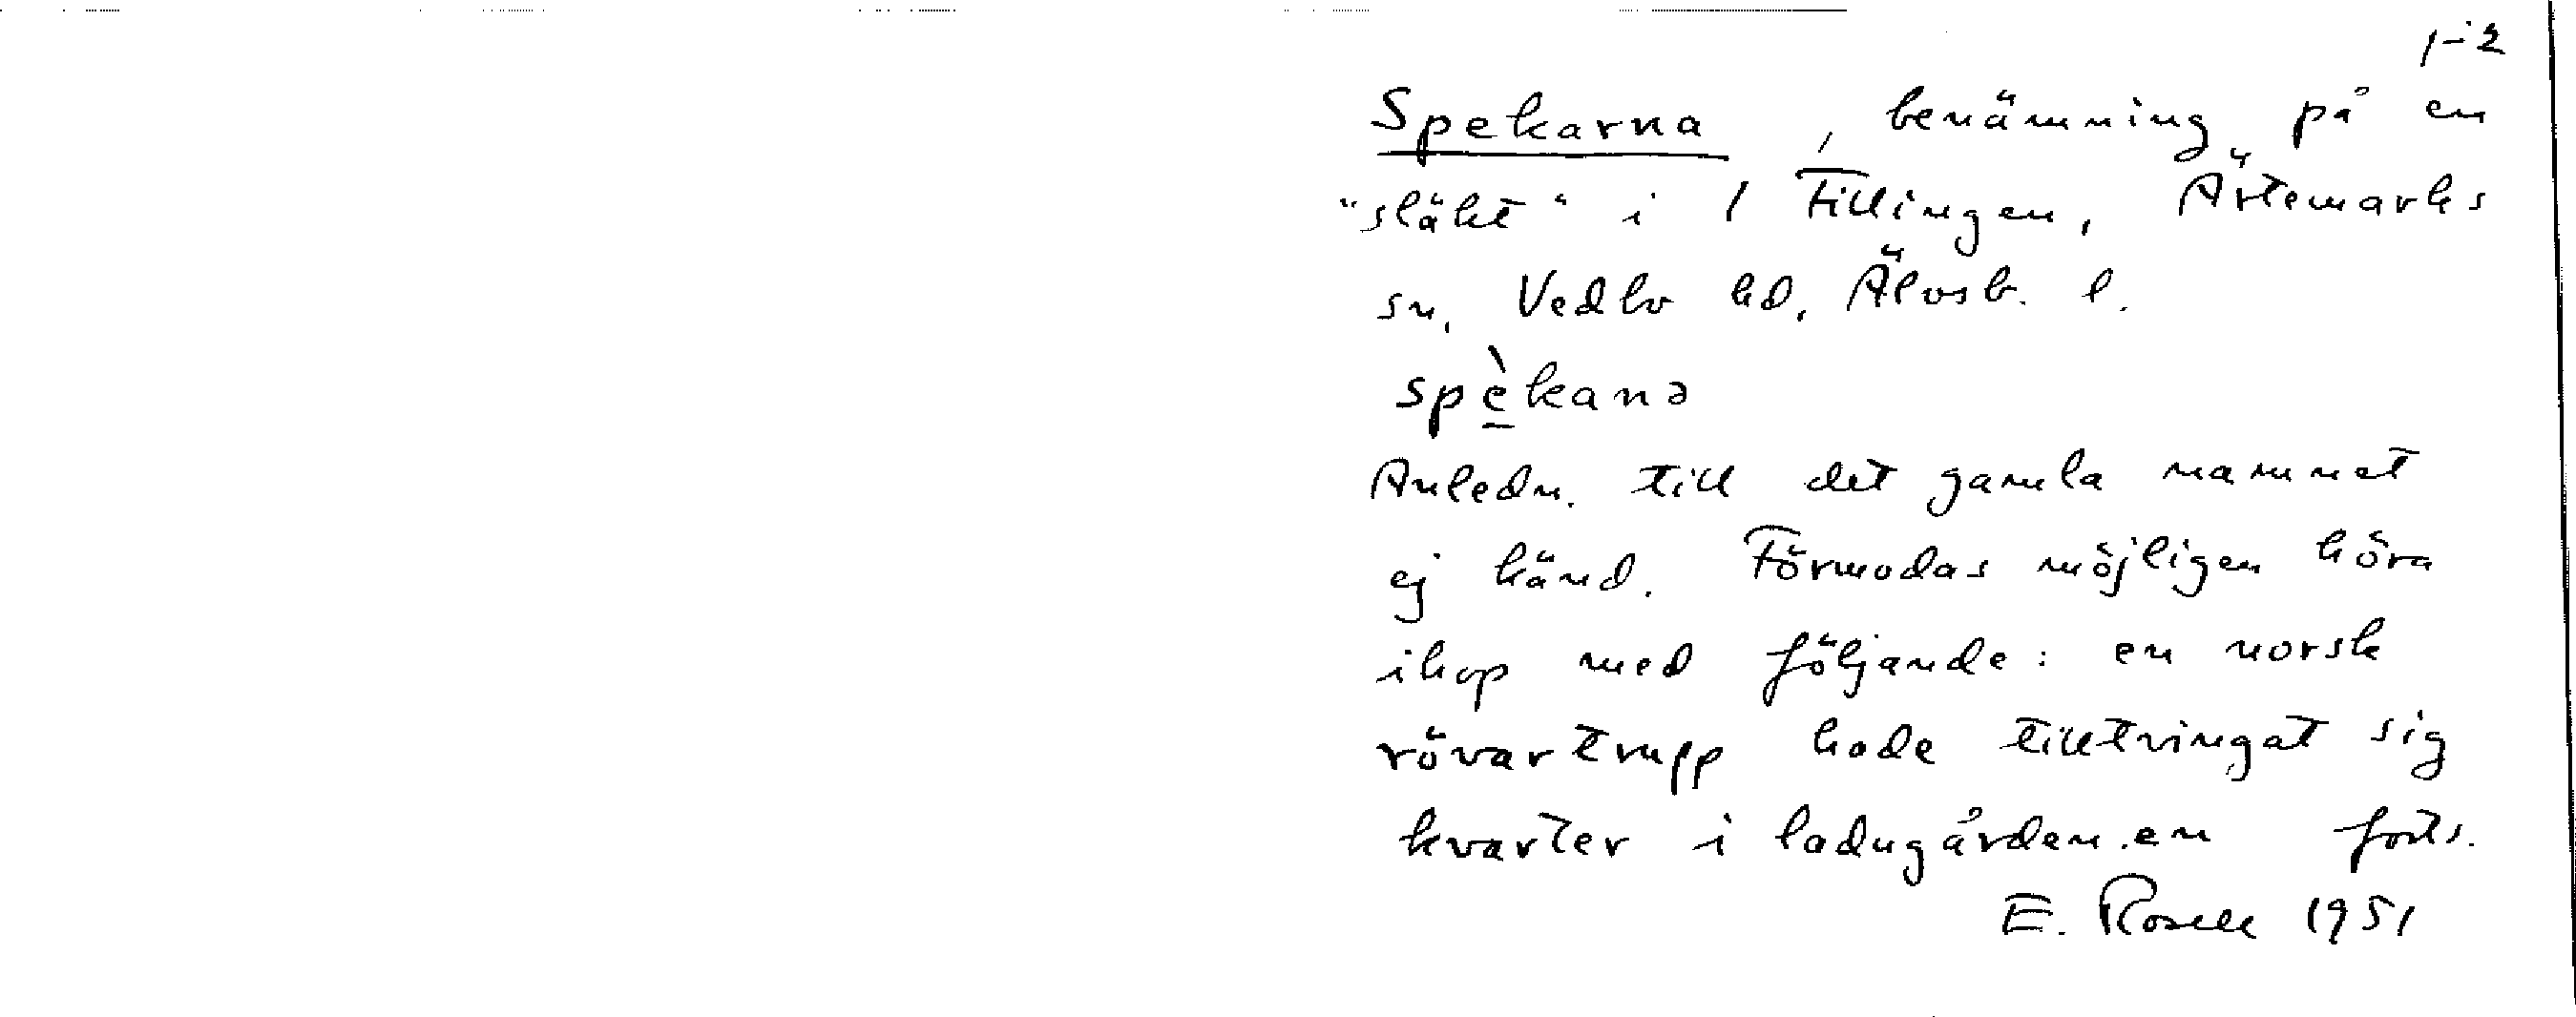 1-2
Spekarna, benämning på en
"släkt" i 1 Tillingen, Ärtemarks
sn, Vedbo hd, Älvsb. l.
spè̲kanə
Anledn. till det gamla namnet
ej känd. Förmodas möjligen höra
ihop med följande: en norsk
rövartrupp hade tilltvingat sig
kvarter i ladugården. en forts.
E. Rosell 1951